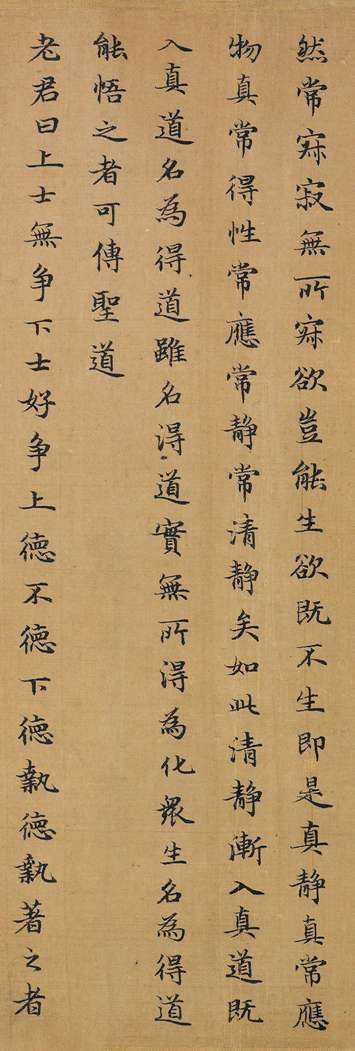 然常寂寂無所寂欲豈能生欲既不生即是真静真常應
物真常得性常應常静常清静矣如此清静漸入真道既
入真道名為得道雖名淂道實無所淂為化衆生名為得道
能悟之者可傳聖道
老君曰上士無争下士好争上德不德下德執德執著之者